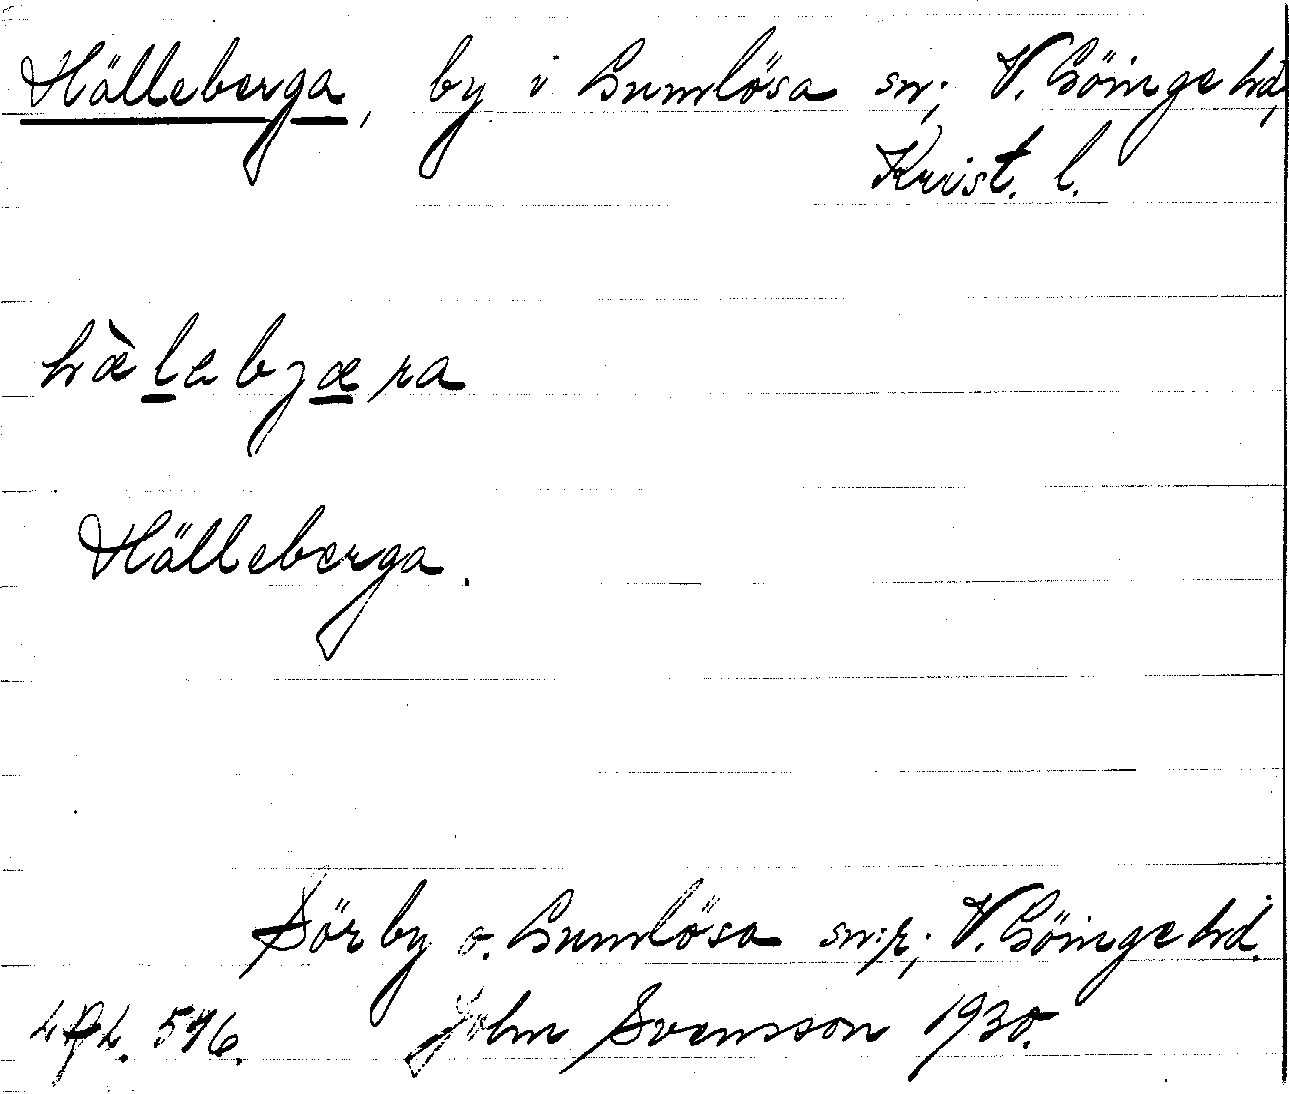 Hälleberga, by i Gumlösa sn; V. Göinge hd,
Krist. l.
hæ̀lebjæra
Hälleberga.
Sörby o. Gumlösa sn:r; V. Göinge hd.
546. John Svensson 1930.